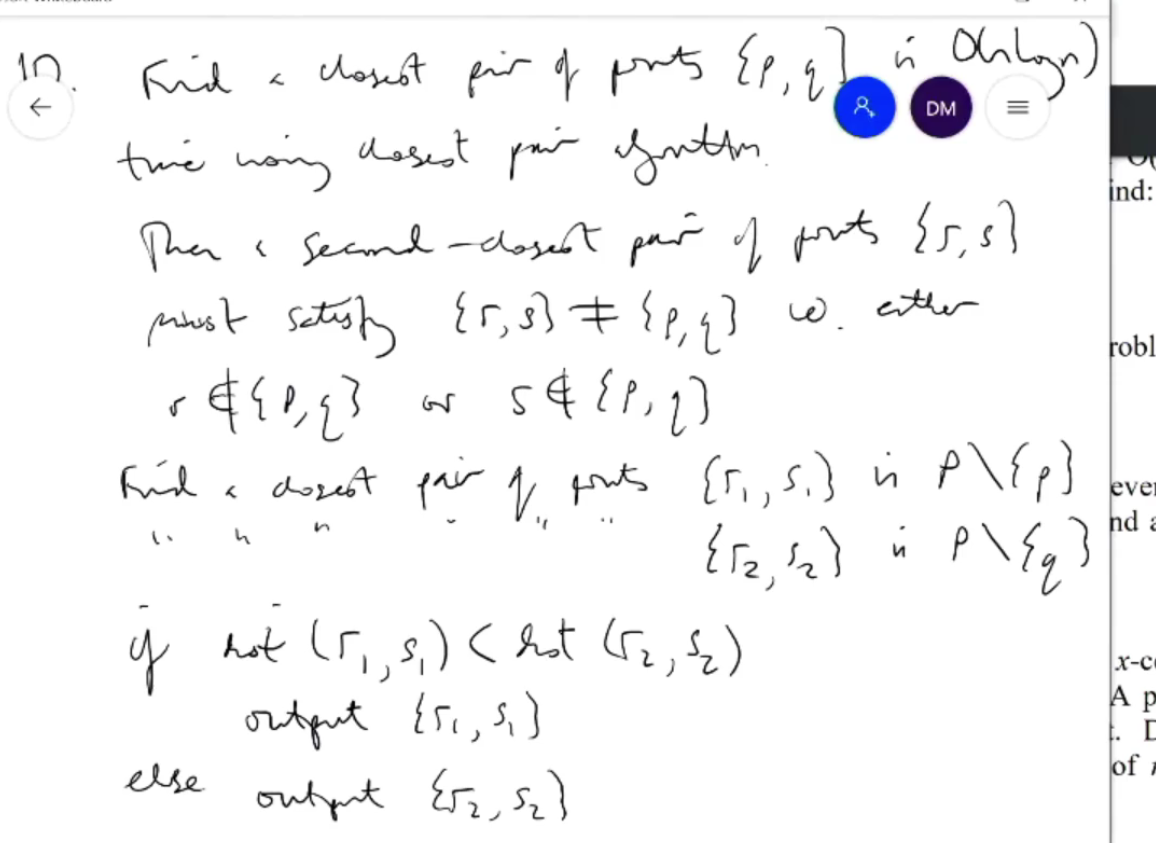 10. Find a closest pair of points {p, q} in O(n log n)
DM
time using closest pair algorithm.
Then a second-closest pair of points {r, s}
must satisfy {r, s} ≠ {p, q} ie. either
r ∉ {p, q} or s ∉ {p, q}
Find a closest pair of points {r₁, s₁} in P\{p}
" " " " " " {r₂, s₂} in P\{q}
if dist (r₁, s₁) < dist (r₂, s₂)
output {r₁, s₁}
else output {r₂, s₂}
ind:
robl
ever
nd a
x-c
A p
of